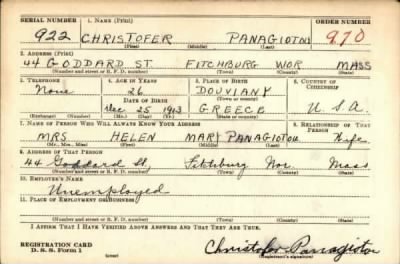 SERIAL NUMBER 1. Name (Print) ORDER NUMBER
922 CHRISTOFER PANAGIOTOU 970
(First) (Middle) (Last)
2. Address (Print)
44 GODDARD ST. FITCHBURG WOR MASS
(Number and street or R. F. D. number) (Town) (County) (State)
3. Telephone 4. Age in Years 5. Place of Birth 6. Country of Citizenship
None 26 DOUVIANY
Date of Birth (Town or county)
Dec 25 1913 GREECE U.S.A.
(Exchange) (Number) (Mo.) (Day) (Yr.) (State or country)
7. Name of Person Who Will Always Know Your Address 8. Relationship of That Person
MRS HELEN MARY PANAGIOTOU Wife
(Mr., Mrs., Miss) (First) (Middle) (Last)
9. Address of That Person
44 Goddard St, Fitchburg Wor. Mass
(Number and street or R. F. D. number) (Town) (County) (State)
10. Employer's Name
Unemployed
11. Place of Employment or Business
(Number and street or R. F. D. number) (Town) (County) (State)
I Affirm That I Have Verified Above Answers and That They Are True.
REGISTRATION CARD
D. S. S. Form 1 (over) Christofer Panagiotou
(Registrant's signature)